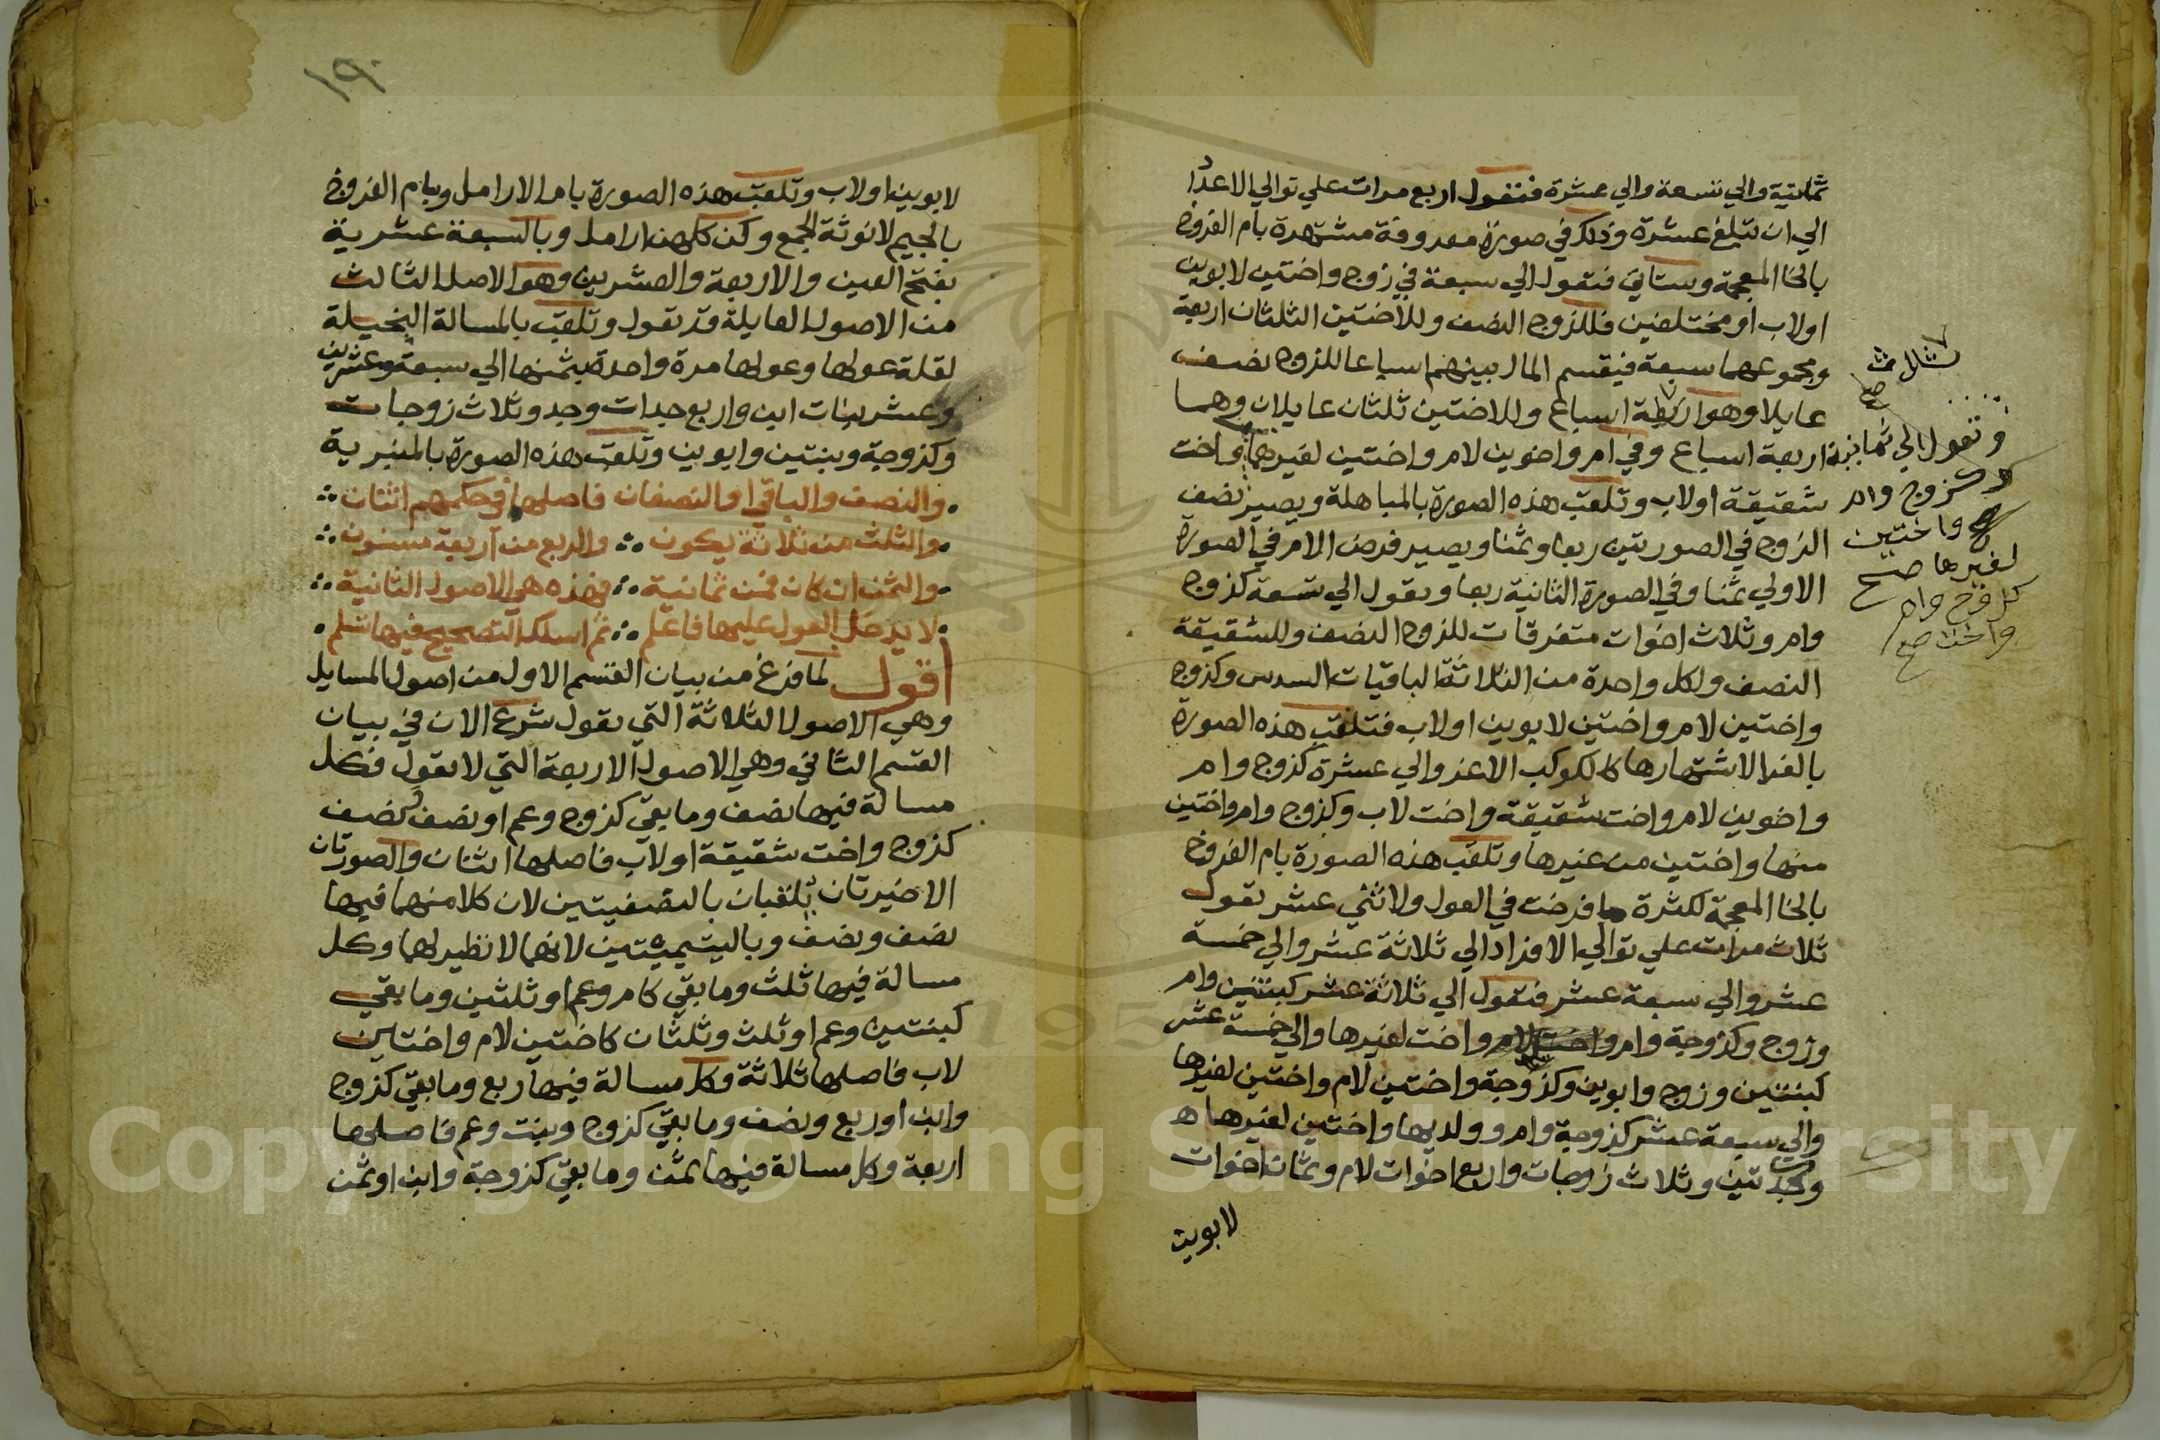 ثمانية والي تسعة والي عشرة فتقول اربع مرات علي توالي الاعداد
الي ان تبلغ عشرة وذلك في صورة معروفة مشتهرة بام الفروخ
بالخا المعجمة وستاتي فتعول الي سبعة في زوج واختين لابوين
اولاب او مختلفين فللزوج النصف وللاختين الثلثان اربعة
ومجموعهما سبعة فيقسم المال بينهم اسباعا للزوج نصف
عايلا وهو اسباع وللاختين ثلثان عايلان وهما
اربعة اسباع وفي ام واخوين لام واختين لغيرهما واخت
شقيقة اولاب وتلقب هذه الصورة بالمباهلة ويصير نصف
الزوج في الصورتين ربعا وثمنا ويصير فرض الام في الصورة
الاولي ثمنا وفي الصورة الثانية ربعا وتعول الي تسعة كزوج
وام وثلاث اخوات متفرقات للزوج النصف وللشقيقة
النصف ولكل واحدة من الثلاثة الباقيات السدس وكزوج
واختين لام واختين لابوين اولاب فتلقب هذه الصورة
بالغرا لاشتهارها كالكوكب الاغر والي عشرة كزوج وام
واخوين لام واخت شقيقة واخت لاب وكزوج وام واختين
منها واختين من غيرها وتلقب هذه الصورة بام الفروخ
بالخا المعجمة لكثرة ما فرخت في العول ولاثني عشر تعول
ثلاث مرات علي توالي الافراد الي ثلاثة عشر والي خمسة
عشر والي سبعة عشر فتعول الي ثلاثة عشر كبنتين وام
وزوج وكزوجة وام واخت لغيرها والي خمسة عشر
كبنتين وزوج وابوين وكزوجة واختين لام واختين لغيرها
والي سبعة عشر كزوجة وام وولديها واختين لغيرها
وجدتين وثلاث زوجات واربع اخوات لام وثمان اخوات
لابوين
وتعول الي ثمانية
كزوج وام
واختين
لغيرها صح
وام
واخت صح
١٩٠
لابوين اولاب وتلقب هذه الصورة بام الارامل وبام الفروج
بالجيم لانوثة الجمع وكن كلهن ارامل وبالسبعة عشرية
بفتح العين والاربعة والعشرين وهو الاصل الثالث
من الاصول العايلة قد تعول وتلقب بالمسالة البخيلة
لقلة عولها وعولها مرة واحدة بثمنها الي سبعة وعشرين
وعشر بنات ابن واربع جدات وجد وثلاث زوجات
وكزوجة وبنتين وابوين وتلقب هذه الصورة بالمنبرية
والنصف والباقي او النصفان فاصلها في حكمهم اثنان
والثلث من ثلاثة يكون والربع من اربعة مسنون
والثمن ان كان فمن ثمانية فهذه هي الاصول الثانية
لا يدخل العول عليها فاعلم ثم اسلك التصحيح فيها تسلم
أقول لما فرغ من بيان القسم الاول من اصول المسايل
وهي الاصول الثلاثة التي تعول شرع الان في بيان
القسم الثاني وهي الاصول الاربعة التي لا تعول فكل
مسالة فيها نصف وما بقي كزوج وعم او نصف ونصف
كزوج واخت شقيقة اولاب فاصلها اثنان والصورتان
الاخيرتان تلقبان بالنصفيتين لان كلا منهما فيها
نصف ونصف وباليتيميتين لانهما لا نظير لهما وكل
مسالة فيها ثلث وما بقي كام وعم او ثلثين وما بقي
كبنتين وعم او ثلث وثلثان كاختين لام واختين
لاب فاصلها ثلاثة وكل مسالة فيها ربع وما بقي كزوج
وابن او ربع ونصف وما بقي كزوج وبنت وعم فاصلها
اربعة وكل مسالة فيها ثمن وما بقي كزوجة وابن او ثمن
Copyright © King Saud University
1957